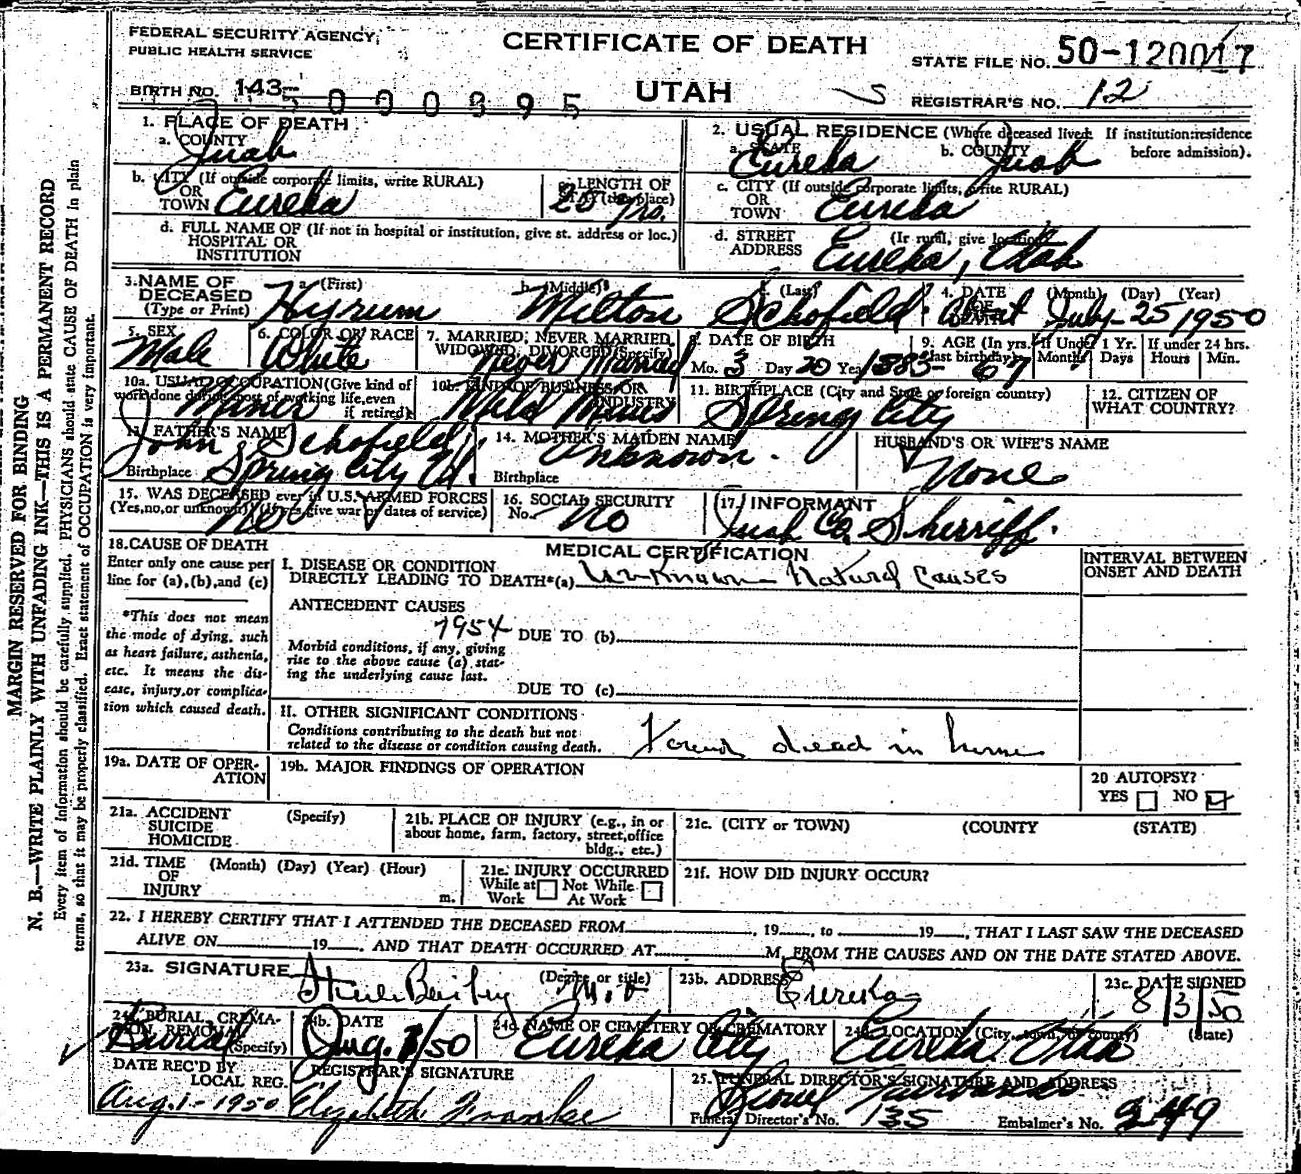 FEDERAL SECURITY AGENCY,
PUBLIC HEALTH SERVICE
CERTIFICATE OF DEATH
UTAH
STATE FILE NO. 50-120017
BIRTH NO. 143-
5000895
REGISTRAR'S NO. 12
1. PLACE OF DEATH
a. COUNTY Juab
2. USUAL RESIDENCE (Where deceased lived. If institution:residence before admission).
a. STATE Eureka b. COUNTY Juab
b. CITY (If outside corporate limits, write RURAL)
OR
TOWN Eureka
c. LENGTH OF
STAY (this place) 20 yrs.
c. CITY (If outside corporate limits, write RURAL)
OR
TOWN Eureka
d. FULL NAME OF (If not in hospital or institution, give st. address or loc.)
HOSPITAL OR
INSTITUTION
d. STREET (If rural, give location)
ADDRESS Eureka, Utah
3. NAME OF a. (First) b. (Middle) c. (Last)
DECEASED
(Type or Print) Hyrum Milton Schofield.
4. DATE (Month) (Day) (Year)
OF
DEATH July-25 1950
5. SEX
Male
6. COLOR OR RACE
White
7. MARRIED, NEVER MARRIED,
WIDOWED, DIVORCED (Specify)
Never Married
8. DATE OF BIRTH
Mo. 3 Day 20 Year 1883-
9. AGE (In yrs. last birthday) 67
If Under 1 Yr. Months Days
If under 24 hrs. Hours Min.
10a. USUAL OCCUPATION (Give kind of
work done during most of working life, even
if retired)
Miner
10b. KIND OF BUSINESS OR
INDUSTRY
11. BIRTHPLACE (City and State or foreign country)
Spring City
12. CITIZEN OF
WHAT COUNTRY?
13. FATHER'S NAME
John Schofield
Birthplace Spring City Ut.
14. MOTHER'S MAIDEN NAME
Unknown.
Birthplace
HUSBAND'S OR WIFE'S NAME
None
15. WAS DECEASED ever in U.S. ARMED FORCES
(Yes, no, or unknown) (If yes give war or dates of service)
No
16. SOCIAL SECURITY
No. No
17. INFORMANT
Juab Co. Sherriff.
18. CAUSE OF DEATH
Enter only one cause per
line for (a), (b), and (c)
*This does not mean
the mode of dying, such
as heart failure, asthenia,
etc. It means the dis-
ease, injury, or complica-
tion which caused death.
MEDICAL CERTIFICATION
INTERVAL BETWEEN
ONSET AND DEATH
I. DISEASE OR CONDITION
DIRECTLY LEADING TO DEATH*(a) Unknown Natural Causes
ANTECEDENT CAUSES
7954
DUE TO (b)
Morbid conditions, if any, giving
rise to the above cause (a) stat-
ing the underlying cause last.
DUE TO (c)
II. OTHER SIGNIFICANT CONDITIONS
Conditions contributing to the death but not
related to the disease or condition causing death.
Found dead in home
19a. DATE OF OPER-
ATION
19b. MAJOR FINDINGS OF OPERATION
20 AUTOPSY?
YES NO
21a. ACCIDENT (Specify)
SUICIDE
HOMICIDE
21b. PLACE OF INJURY (e.g., in or
about home, farm, factory, street, office
bldg., etc.)
21c. (CITY or TOWN) (COUNTY (STATE)
21d. TIME (Month) (Day) (Year) (Hour)
OF
INJURY m.
21e. INJURY OCCURRED
While at Work Not While At Work
21f. HOW DID INJURY OCCUR?
22. I HEREBY CERTIFY THAT I ATTENDED THE DECEASED FROM , 19 , to 19 , THAT I LAST SAW THE DECEASED
ALIVE ON 19 . AND THAT DEATH OCCURRED AT M, FROM THE CAUSES AND ON THE DATE STATED ABOVE.
23a. SIGNATURE (Degree or title)
M.D
23b. ADDRESS
Eureka
23c. DATE SIGNED
8/3/50
24a. BURIAL, CREMA-
TION, REMOVAL
(Specify) Burial
24b. DATE
Aug. 1/50
24c. NAME OF CEMETERY OR CREMATORY
Eureka City
24d. LOCATION (City, town, or county) (State)
Eureka Utah
DATE REC'D BY
LOCAL REG.
Aug. 1- 1950
REGISTRAR'S SIGNATURE
Elizabeth Franke
25. FUNERAL DIRECTOR'S SIGNATURE AND ADDRESS
Funeral Director's No. 135 Embalmer's No. 249
MARGIN RESERVED FOR BINDING
N. B.—WRITE PLAINLY WITH UNFADING INK—THIS IS A PERMANENT RECORD
Every item of information should be carefully supplied. PHYSICIANS should state CAUSE OF DEATH in plain
terms, so that it may be properly classified. Exact statement of OCCUPATION is very important.